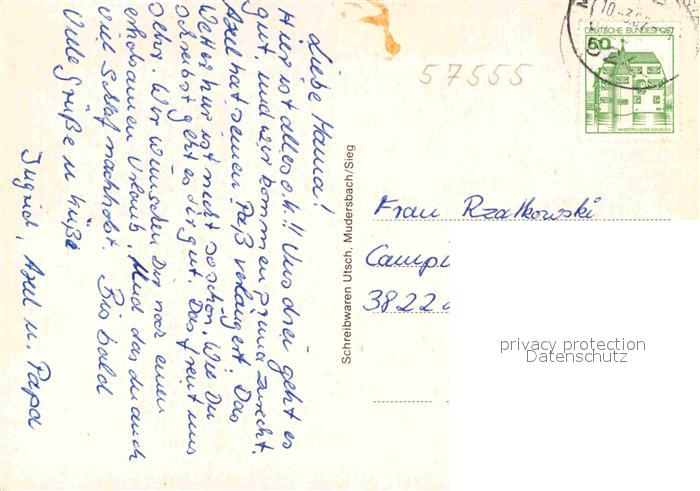 Liebe Mama!
Hier ist alles o.k.!! Uns drei geht es
gut, und wir kommen prima zurecht.
Axel hat seinen Paß verlängert. Das
Wetter hier ist nicht so schön. Wie Du
schreibst geht es dir gut. Das freut uns
sehr. Wir wünschen Dir noch einen
erholsamen Urlaub. Und das du auch
viel Schlaf nachholst. Bis bald
Viele Grüße u. Küße
Ingrid, Axel u. Papa
Schreibwaren Utsch, Mudersbach/Sieg
57555
10.-3.82
DEUTSCHE BUNDESPOST
50
WASSERSCHLOSS INZLINGEN
Frau Rzatkowski
Campi
3822
privacy protection
Datenschutz